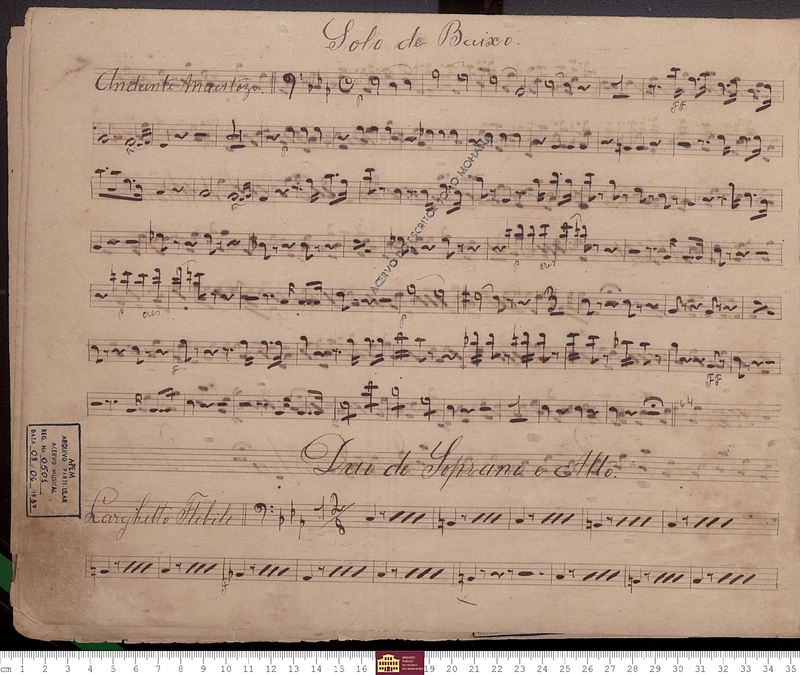 Solo de Baixo.
Andante Maestozo.
p
FF
p
p
ACERVO DO ESCRITOR JOÃO MOHANA
p cres
p cres
p
F
FF
Duo de Soprano e Alto.
APEM
ARQUIVO PARTICULAR
ACERVO MUSICAL
REG. No. 0501
DATA 08/06/1987
Larghetto Flebile
12
8
cm 1 2 3 4 5 6 7 8 9 10 11 12 13 14 15 16 18 19 20 21 22 23 24 25 26 27 28 29 30 31 32 33 34 35
ARQUIVO
PÚBLICO
DO ESTADO
DO MARANHÃO